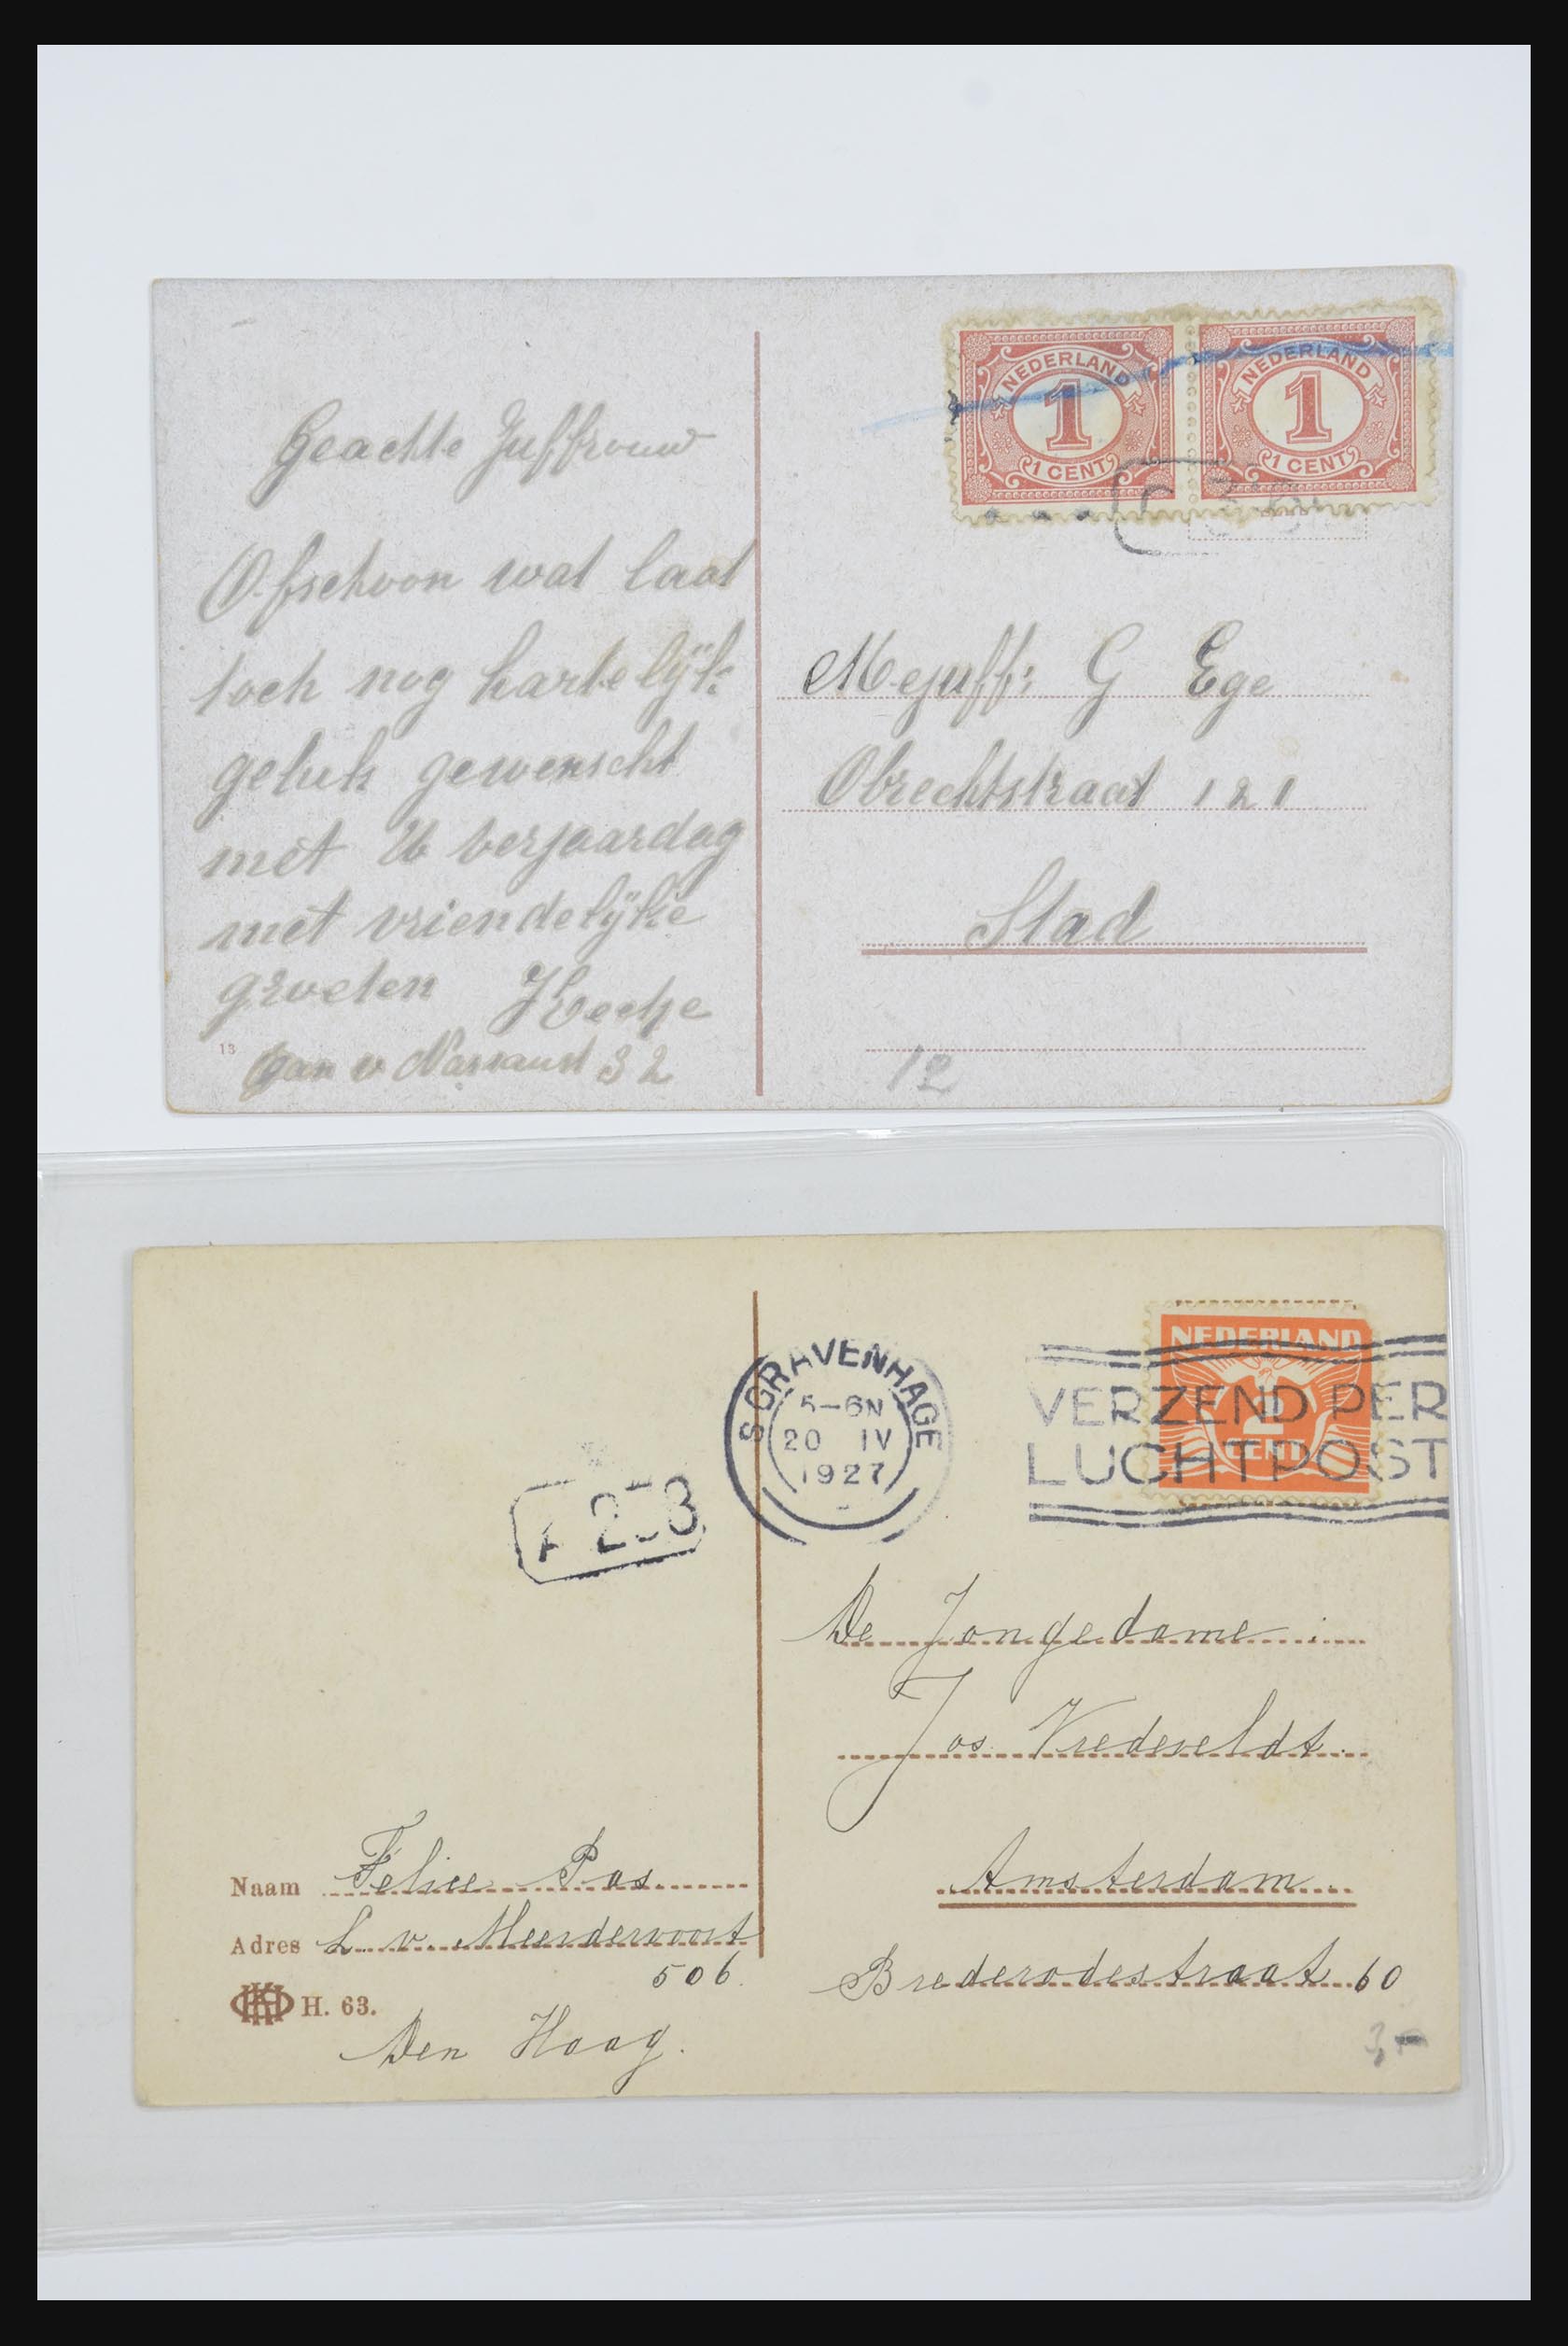 NEDERLAND
1
1 CENT
NEDERLAND
1
1 CENT
Geachte Juffrouw
Ofschoon wat laat
toch nog hartelijk
geluk gewenscht
met Uw verjaardag
met vriendelijke
groeten
13
v Nassaust 32
Mejuff: G Ege
Obrechtstraat 121
Stad
12
NEDERLAND
2
CENT
S GRAVENHAGE
5-6N
20 IV
1927
VERZEND PER
LUCHTPOST
De Jongedame
Jos Vredeveldt.
Amsterdam.
Brederodestraat 60
Naam Felice Pas
Adres L. v. Meerdervoort
506.
H. 63.
Den Haag.
3,-